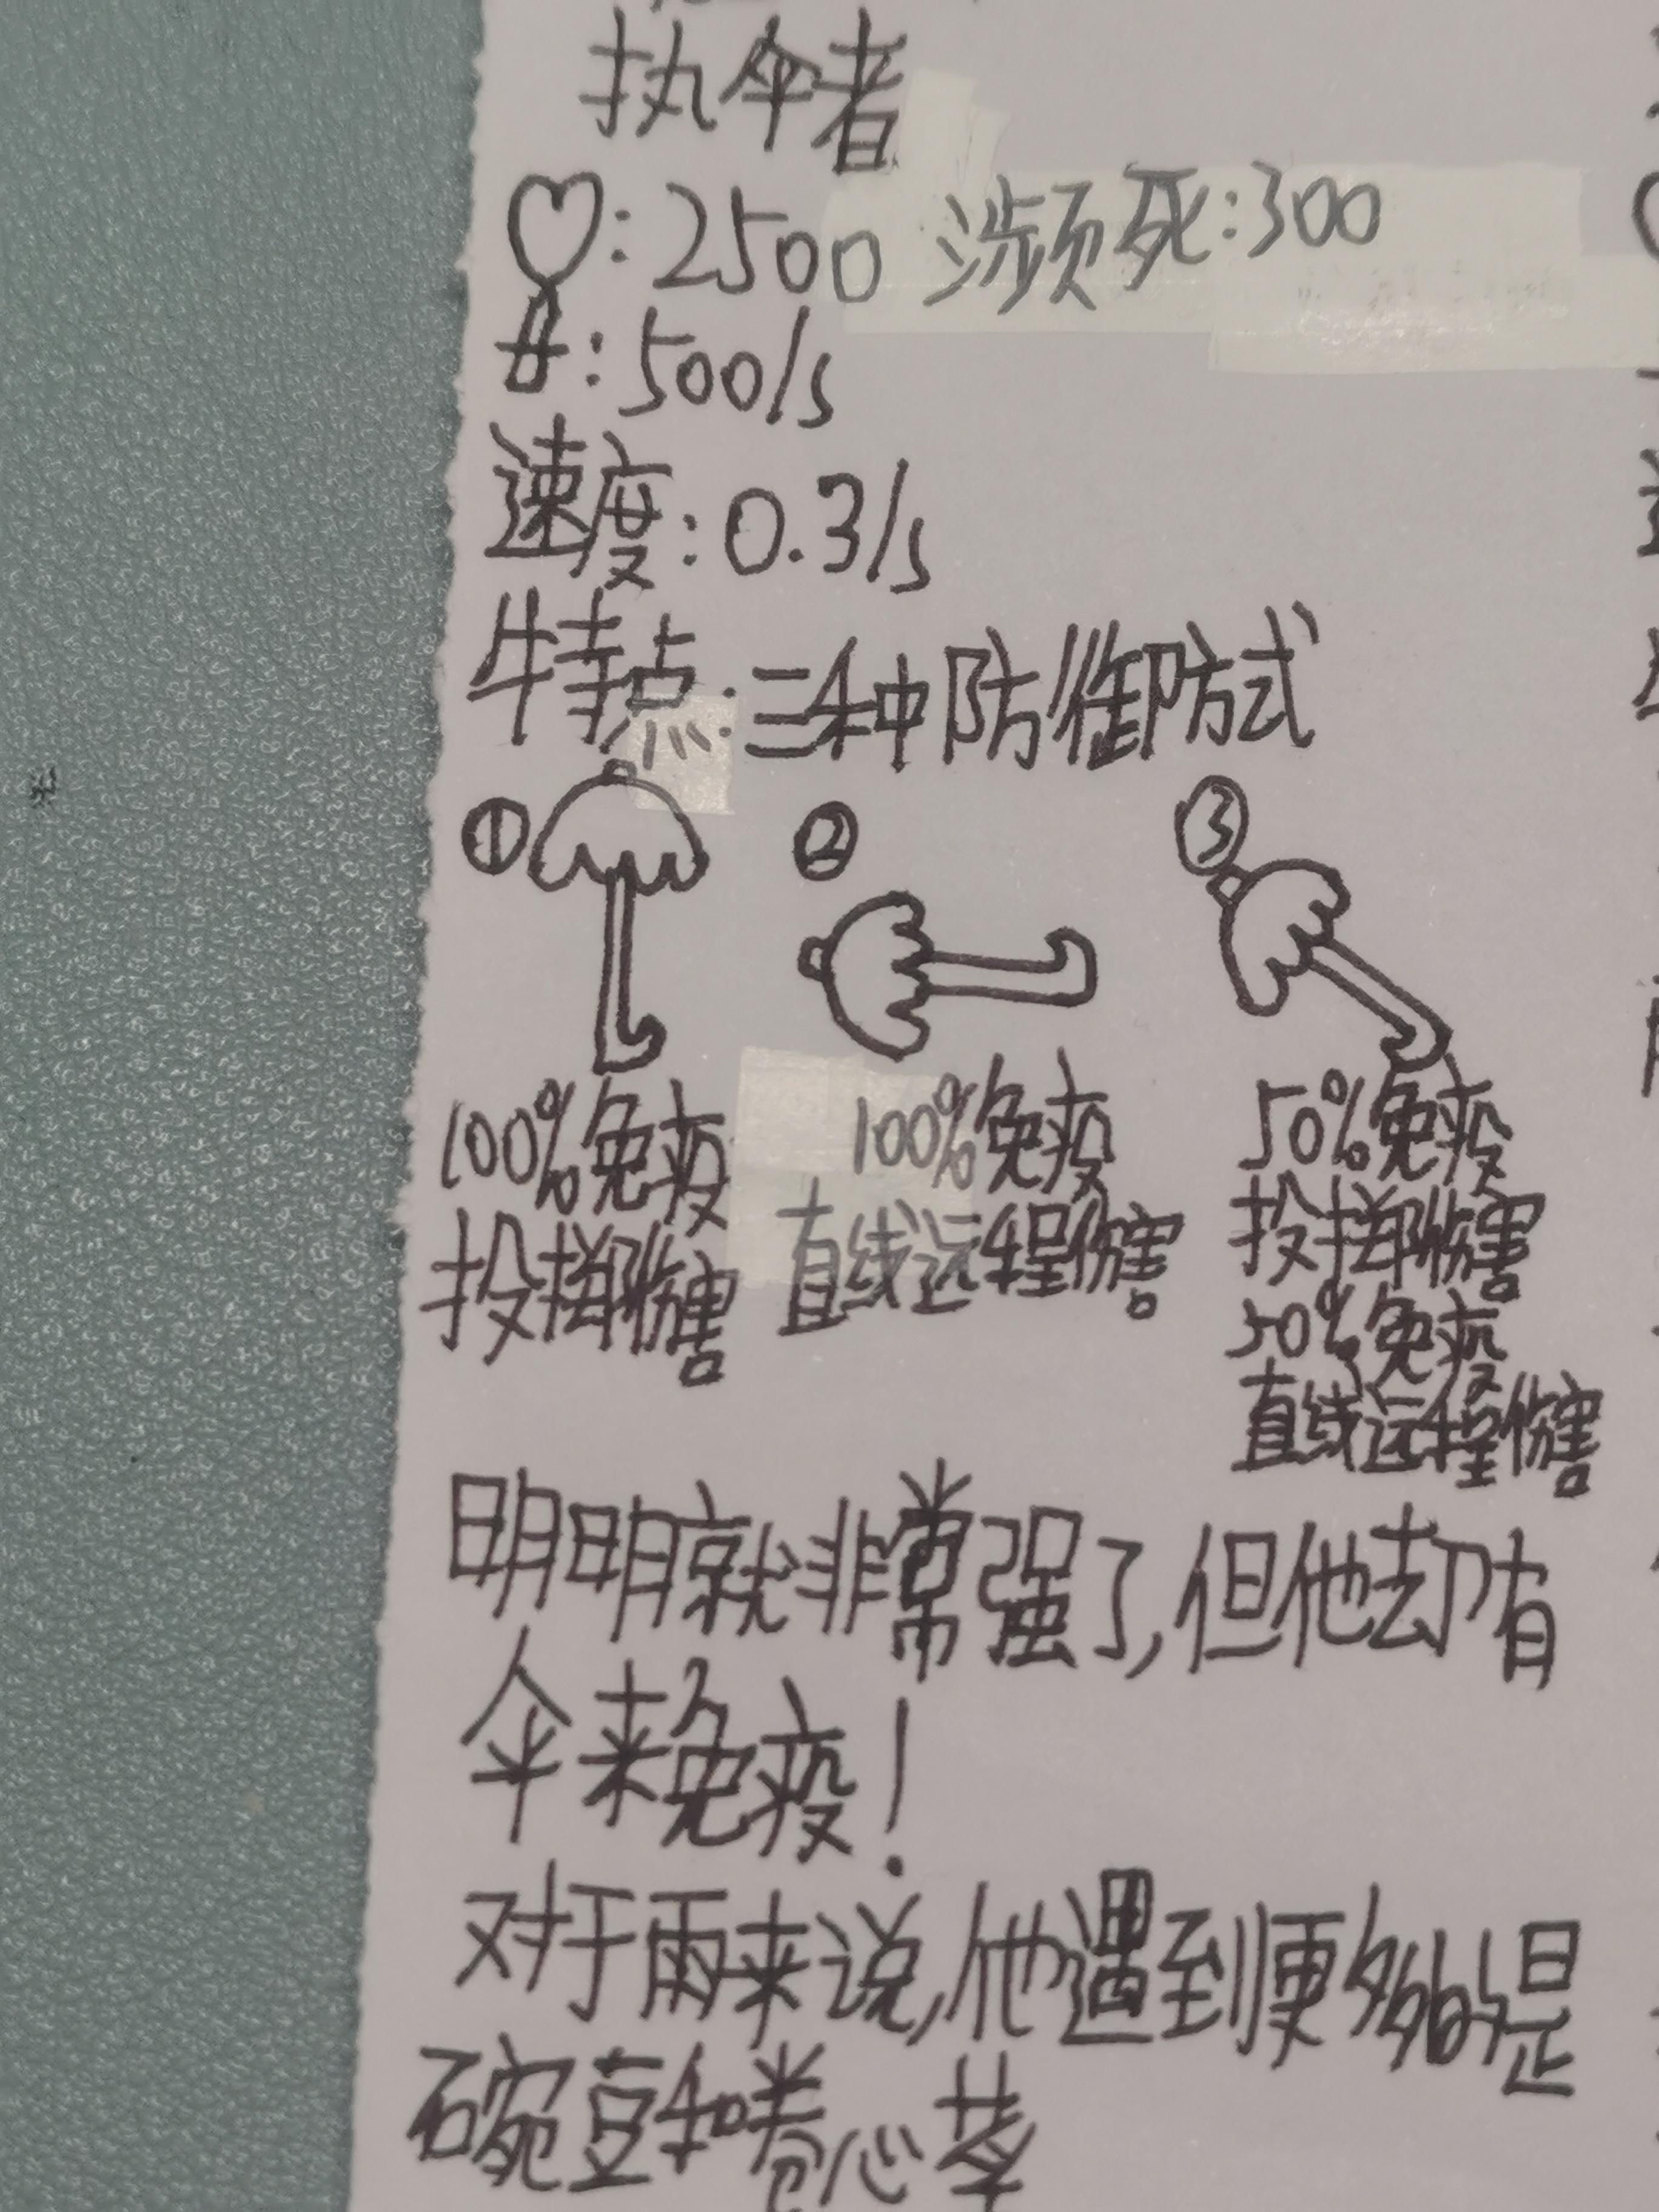 执伞者
：2500 濒死：300
：500/s
速度：0.3/s
特点：三种防御方式
①
②
③
100%免疫
投掷伤害
100%免疫
直线远程伤害
50%免疫
投掷伤害
50%免疫
直线远程伤害
明明就非常强了，但他却有
伞来免疫！
对于雨来说，他遇到更多的是
碗豆和卷心菜